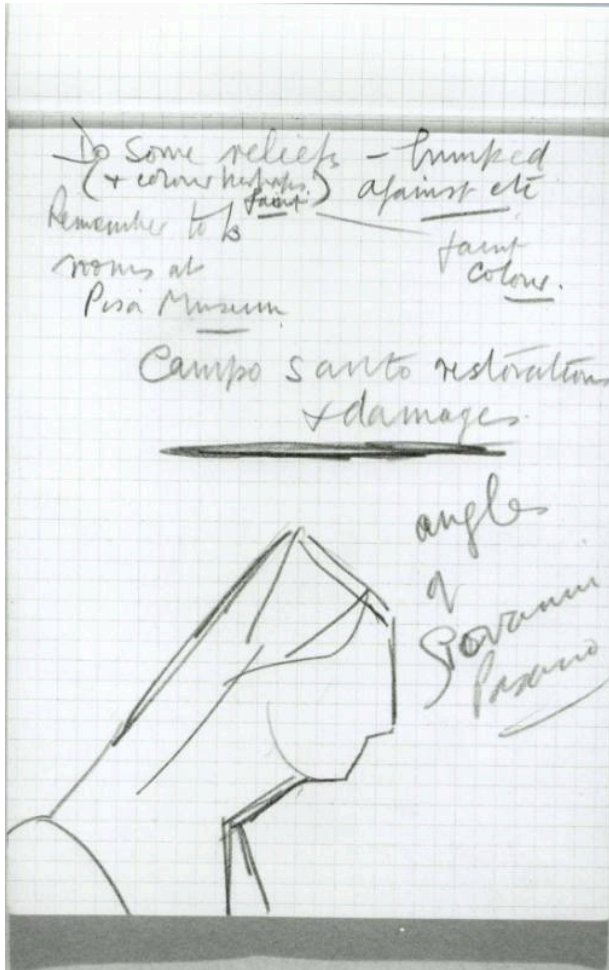 Do Some reliefs – bumped
(+ colour perhaps faint) against etc
Remember to
rooms at
Pisa Museum
faint
colour.
Campo santo restorations
+ damages
angles
of
Giovanni
Pisano